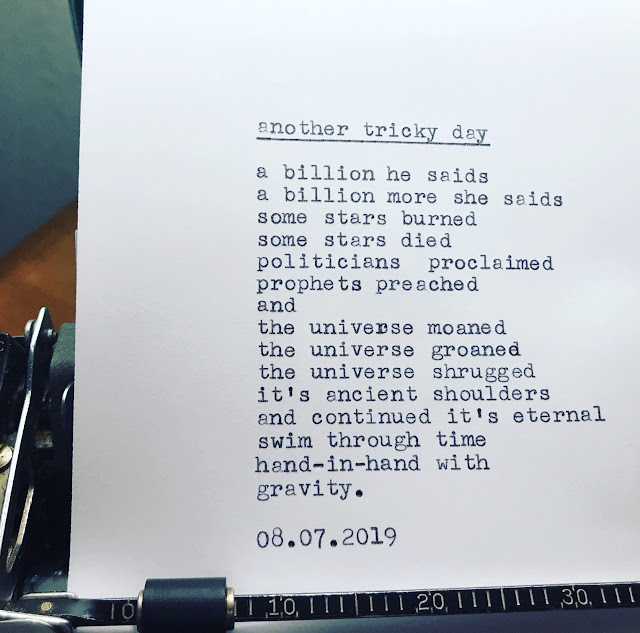 another tricky day
a billion he saids
a billion more she saids
some stars burned
some stars died
politicians  proclaimed
prophets preached
and
the universe moaned
the universe groaned
the universe shrugged
it's ancient shoulders
and continued it's eternal
swim through time
hand-in-hand with
gravity.
08.07.2019
0 10 20 30